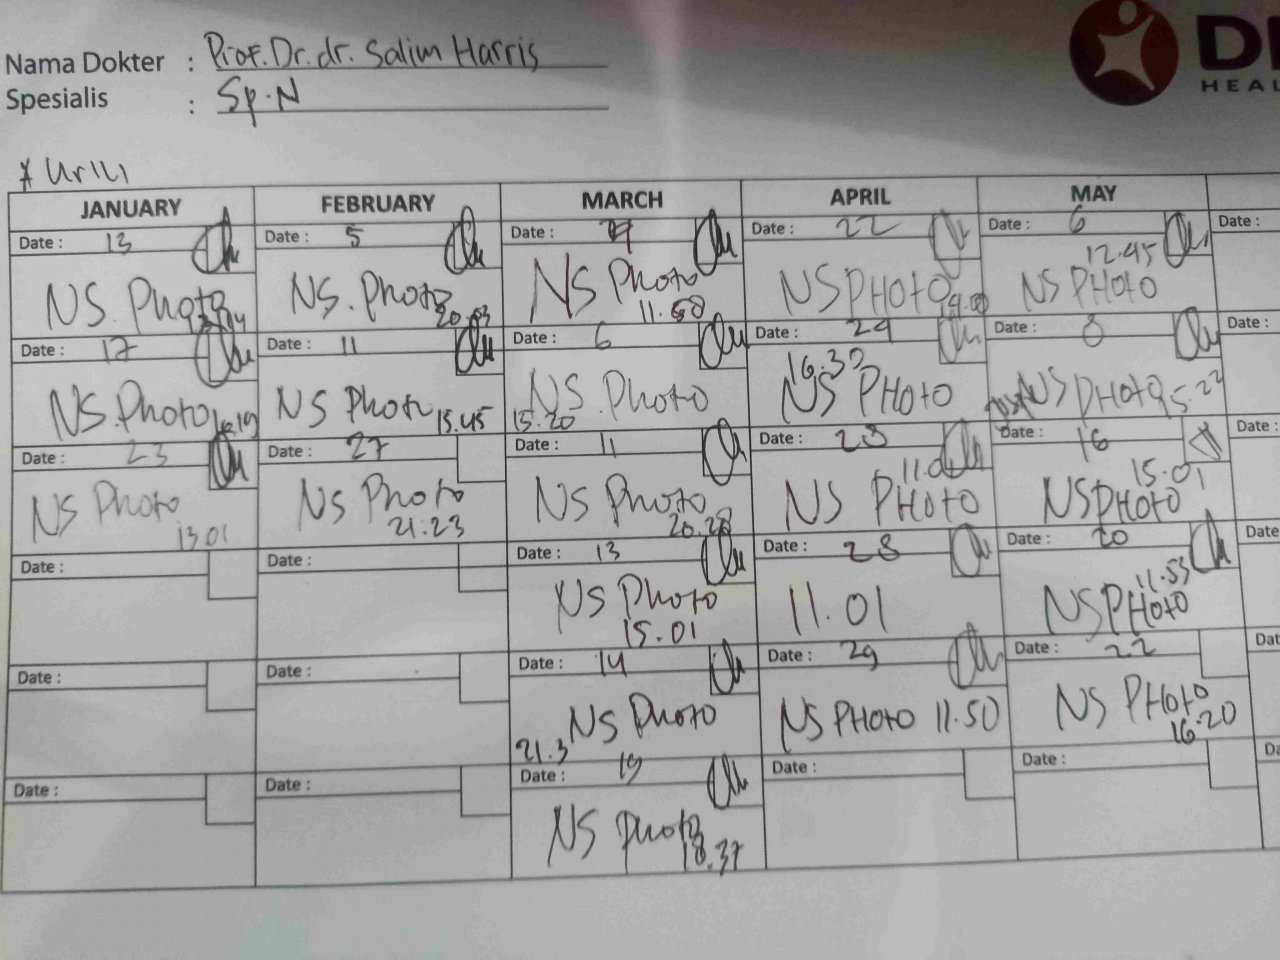 Nama Dokter : Prof. Dr. dr. Salim Harris
Spesialis : Sp.N
HEAL
JANUARY FEBRUARY MARCH APRIL MAY
Date : 13 Date : 5 Date : Date : 22 Date : 6
12.45
NS. Photo NS. Photo NS Photo NS PHOTO NS PHOTO
20.03 11.58
Date : 17 Date : 11 Date : 6 Date : 29 Date : 8 Date :
16.33
NS. Photo NS Photo 15.45 NS. Photo NS PHOTO NS PHOTO 15.22
15.20
Date : 23 Date : 27 Date : 11 Date : 28 Date : 16 Date :
15.01
NS Photo NS Photo NS Photo NS PHOTO NSPHOTO
13.01 21.23 20.28
Date : Date : Date : 13 Date : 28 Date : 20 Date
11.53
NS Photo 11.01 NSPHOTO
15.01
Date : Date : Date : 14 Date : 29 Date : 22 Dat
NS Photo NS PHOTO 11.50 NS PHOTO
21.3 16.20
Date : Date : Date : 19 Date : Date : Da
NS Photo
18.37